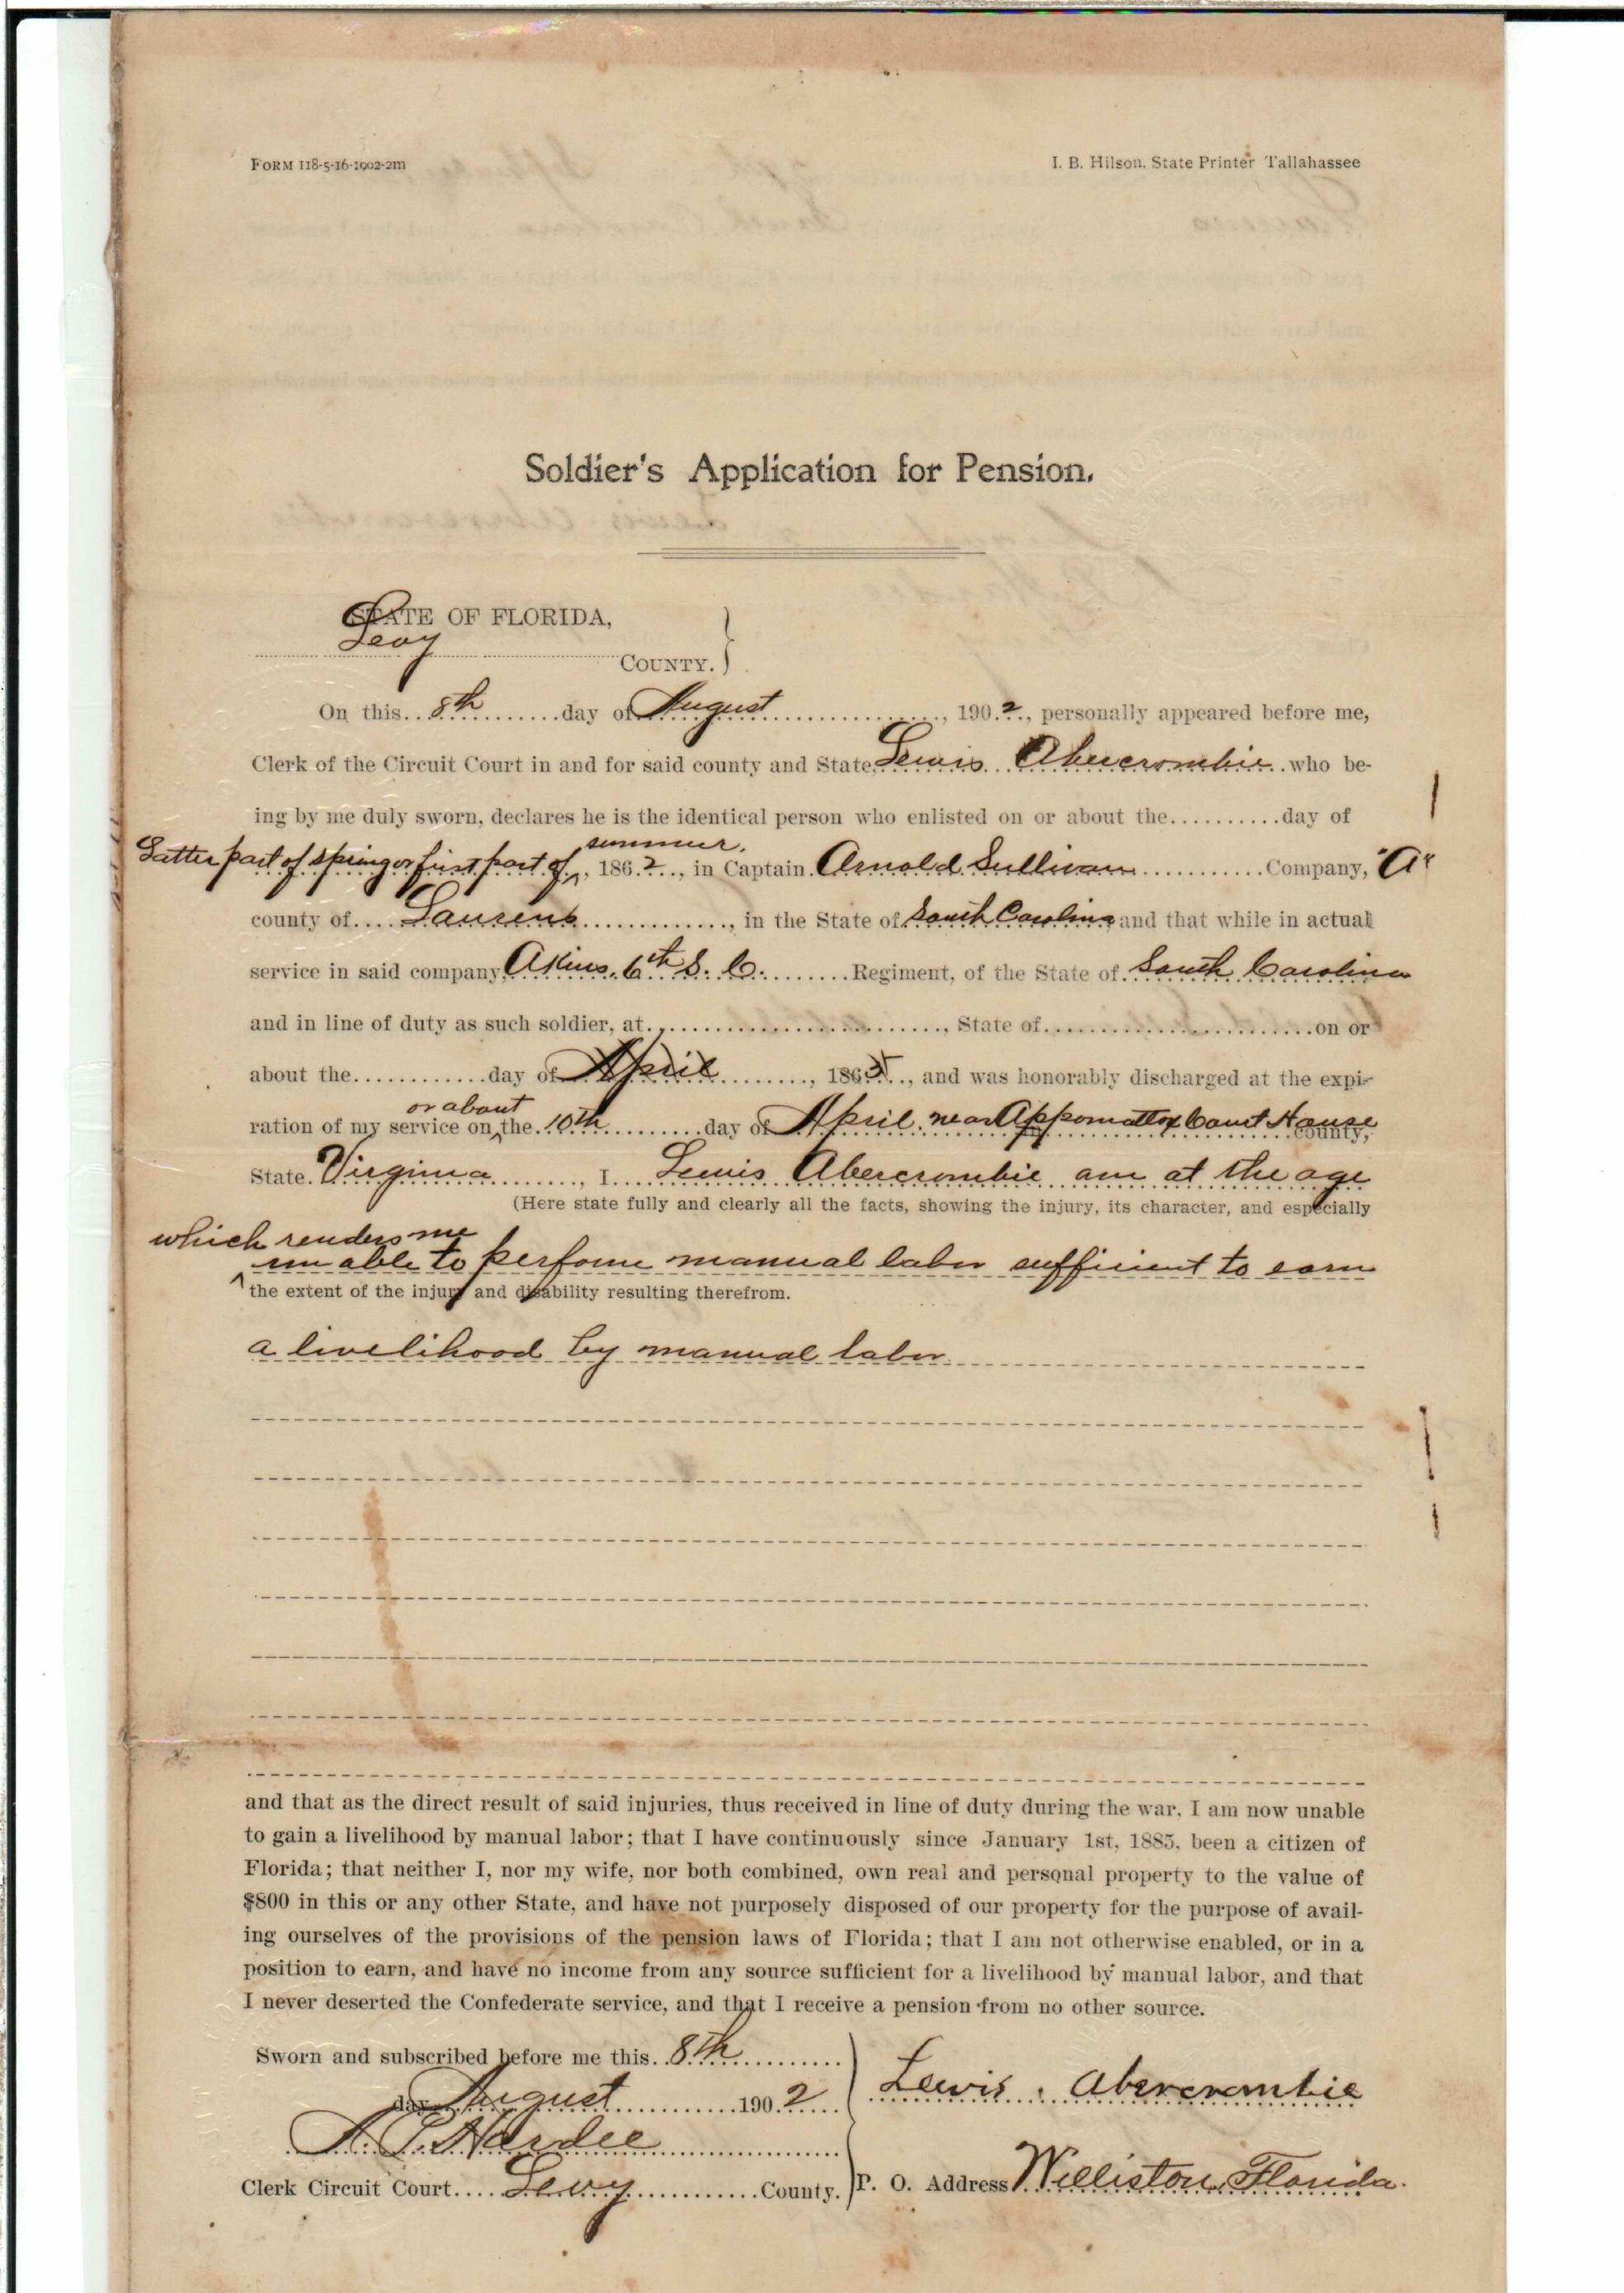 FORM 118-5-16-1902-2m
I. B. Hilson, State Printer Tallahassee
Soldier's Application for Pension.
STATE OF FLORIDA,
Levy COUNTY.
On this 8th day of August, 1902, personally appeared before me,
Clerk of the Circuit Court in and for said county and State, Lewis Abercrombie who be-
ing by me duly sworn, declares he is the identical person who enlisted on or about the..........day of
summer.
Latter part of spring or first part of ^, 1862, in Captain Arnold Sullivan Company, "A"
county of Laurens, in the State of South Carolina and that while in actual
service in said company, Akins, 6th S. C. Regiment, of the State of South Carolina
and in line of duty as such soldier, at..........., State of..........on or
about the..........day of April, 1865, and was honorably discharged at the expi-
or about
ration of my service on ^ the 10th day of April near Appomattox Court House county,
State Virginia, I Lewis Abercrombie am at the age
(Here state fully and clearly all the facts, showing the injury, its character, and especially
which renders me
^ unable to perform manual labor sufficient to earn
the extent of the injury and disability resulting therefrom.
a livelihood by manual labor
and that as the direct result of said injuries, thus received in line of duty during the war, I am now unable
to gain a livelihood by manual labor; that I have continuously since January 1st, 1885, been a citizen of
Florida; that neither I, nor my wife, nor both combined, own real and personal property to the value of
$800 in this or any other State, and have not purposely disposed of our property for the purpose of avail-
ing ourselves of the provisions of the pension laws of Florida; that I am not otherwise enabled, or in a
position to earn, and have no income from any source sufficient for a livelihood by manual labor, and that
I never deserted the Confederate service, and that I receive a pension from no other source.
Sworn and subscribed before me this 8th
day August 1902
Lewis Abercrombie
Hardee
Clerk Circuit Court Levy County.
P. O. Address Williston, Florida.